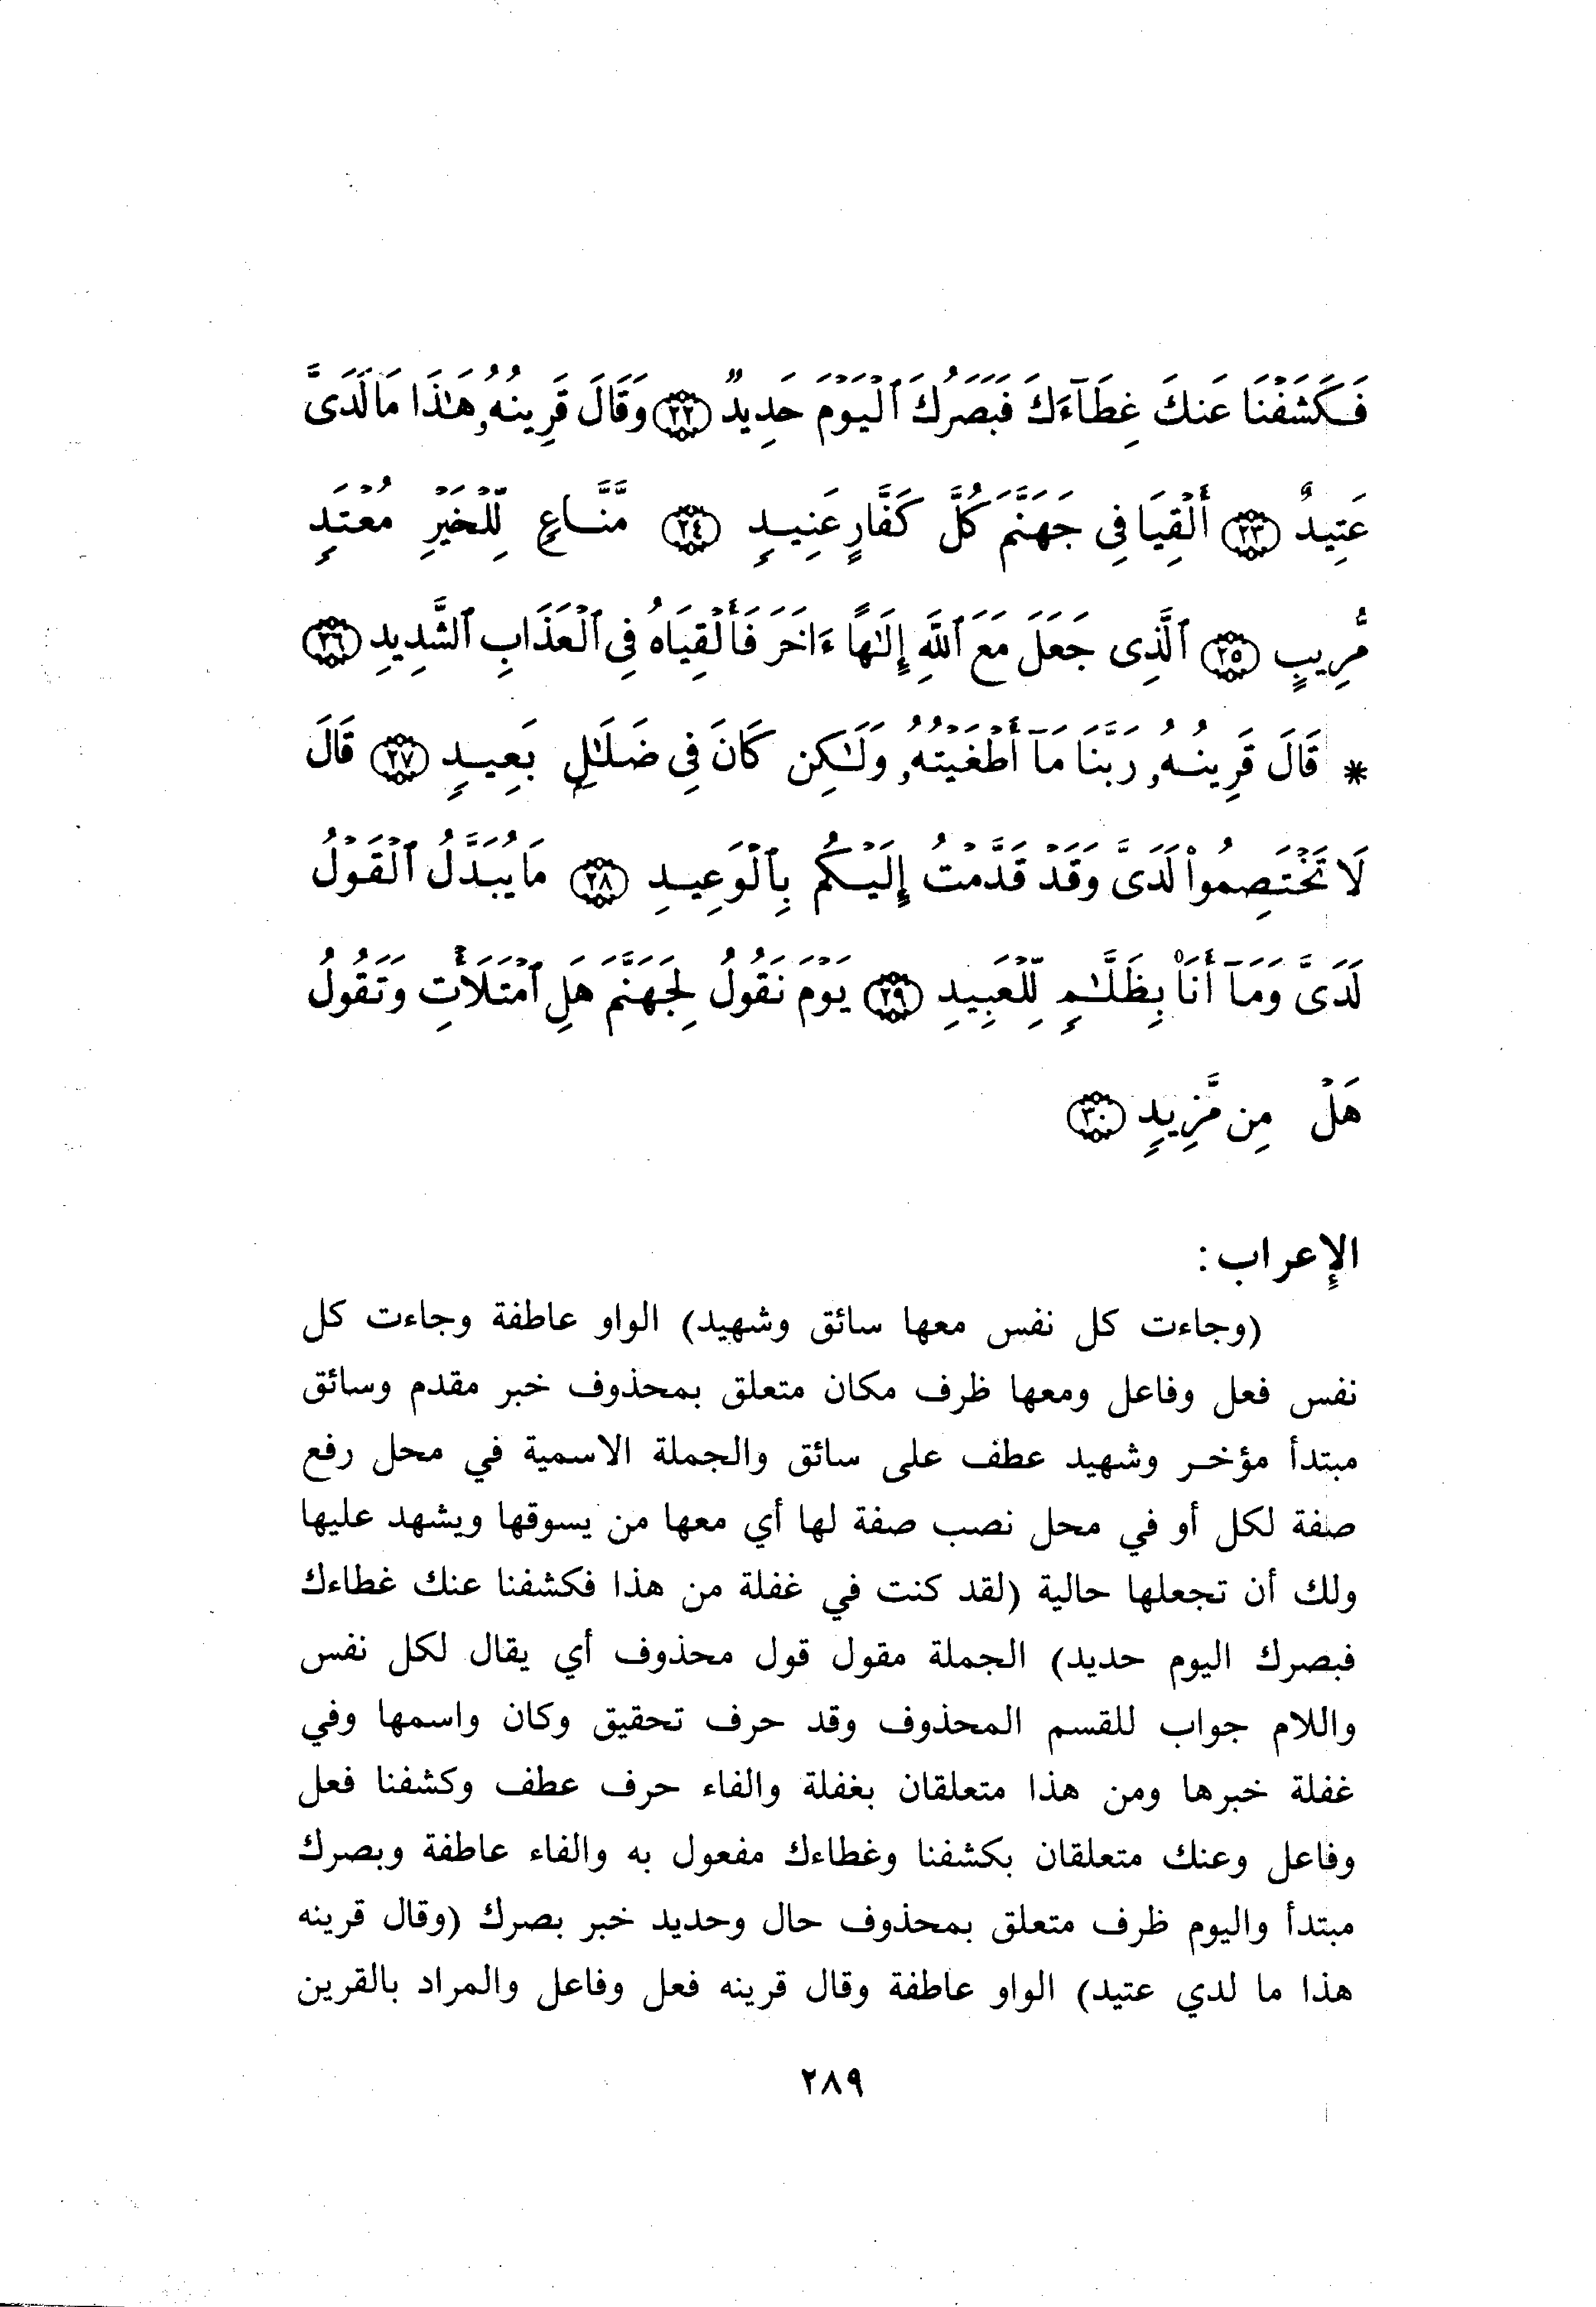 فَكَشَفْنَا عَنكَ غِطَآءَكَ فَبَصَرُكَ ٱلْيَوْمَ حَدِيدٌ ﴿٢٢﴾ وَقَالَ قَرِينُهُۥ هَـٰذَا مَا لَدَىَّ
عَتِيدٌ ﴿٢٣﴾ أَلْقِيَا فِى جَهَنَّمَ كُلَّ كَفَّارٍ عَنِيدٍ ﴿٢٤﴾ مَّنَّاعٍ لِّلْخَيْرِ مُعْتَدٍ
مُّرِيبٍ ﴿٢٥﴾ ٱلَّذِى جَعَلَ مَعَ ٱللَّهِ إِلَـٰهًا ءَاخَرَ فَأَلْقِيَاهُ فِى ٱلْعَذَابِ ٱلشَّدِيدِ ﴿٢٦﴾
* قَالَ قَرِينُهُۥ رَبَّنَا مَآ أَطْغَيْتُهُۥ وَلَـٰكِن كَانَ فِى ضَلَـٰلٍ بَعِيدٍ ﴿٢٧﴾ قَالَ
لَا تَخْتَصِمُوا۟ لَدَىَّ وَقَدْ قَدَّمْتُ إِلَيْكُم بِٱلْوَعِيدِ ﴿٢٨﴾ مَا يُبَدَّلُ ٱلْقَوْلُ
لَدَىَّ وَمَآ أَنَا۠ بِظَلَّـٰمٍ لِّلْعَبِيدِ ﴿٢٩﴾ يَوْمَ نَقُولُ لِجَهَنَّمَ هَلِ ٱمْتَلَأْتِ وَتَقُولُ
هَلْ مِن مَّزِيدٍ ﴿٣٠﴾
الإعراب :
(وجاءت كل نفس معها سائق وشهيد) الواو عاطفة وجاءت كل
نفس فعل وفاعل ومعها ظرف مكان متعلق بمحذوف خبر مقدم وسائق
مبتدأ مؤخر وشهيد عطف على سائق والجملة الاسمية في محل رفع
صفة لكل أو في محل نصب صفة لها أي معها من يسوقها ويشهد عليها
ولك أن تجعلها حالية (لقد كنت في غفلة من هذا فكشفنا عنك غطاءك
فبصرك اليوم حديد) الجملة مقول قول محذوف أي يقال لكل نفس
واللام جواب للقسم المحذوف وقد حرف تحقيق وكان واسمها وفي
غفلة خبرها ومن هذا متعلقان بغفلة والفاء حرف عطف وكشفنا فعل
وفاعل وعنك متعلقان بكشفنا وغطاءك مفعول به والفاء عاطفة وبصرك
مبتدأ واليوم ظرف متعلق بمحذوف حال وحديد خبر بصرك (وقال قرينه
هذا ما لدي عتيد) الواو عاطفة وقال قرينه فعل وفاعل والمراد بالقرين
٢٨٩